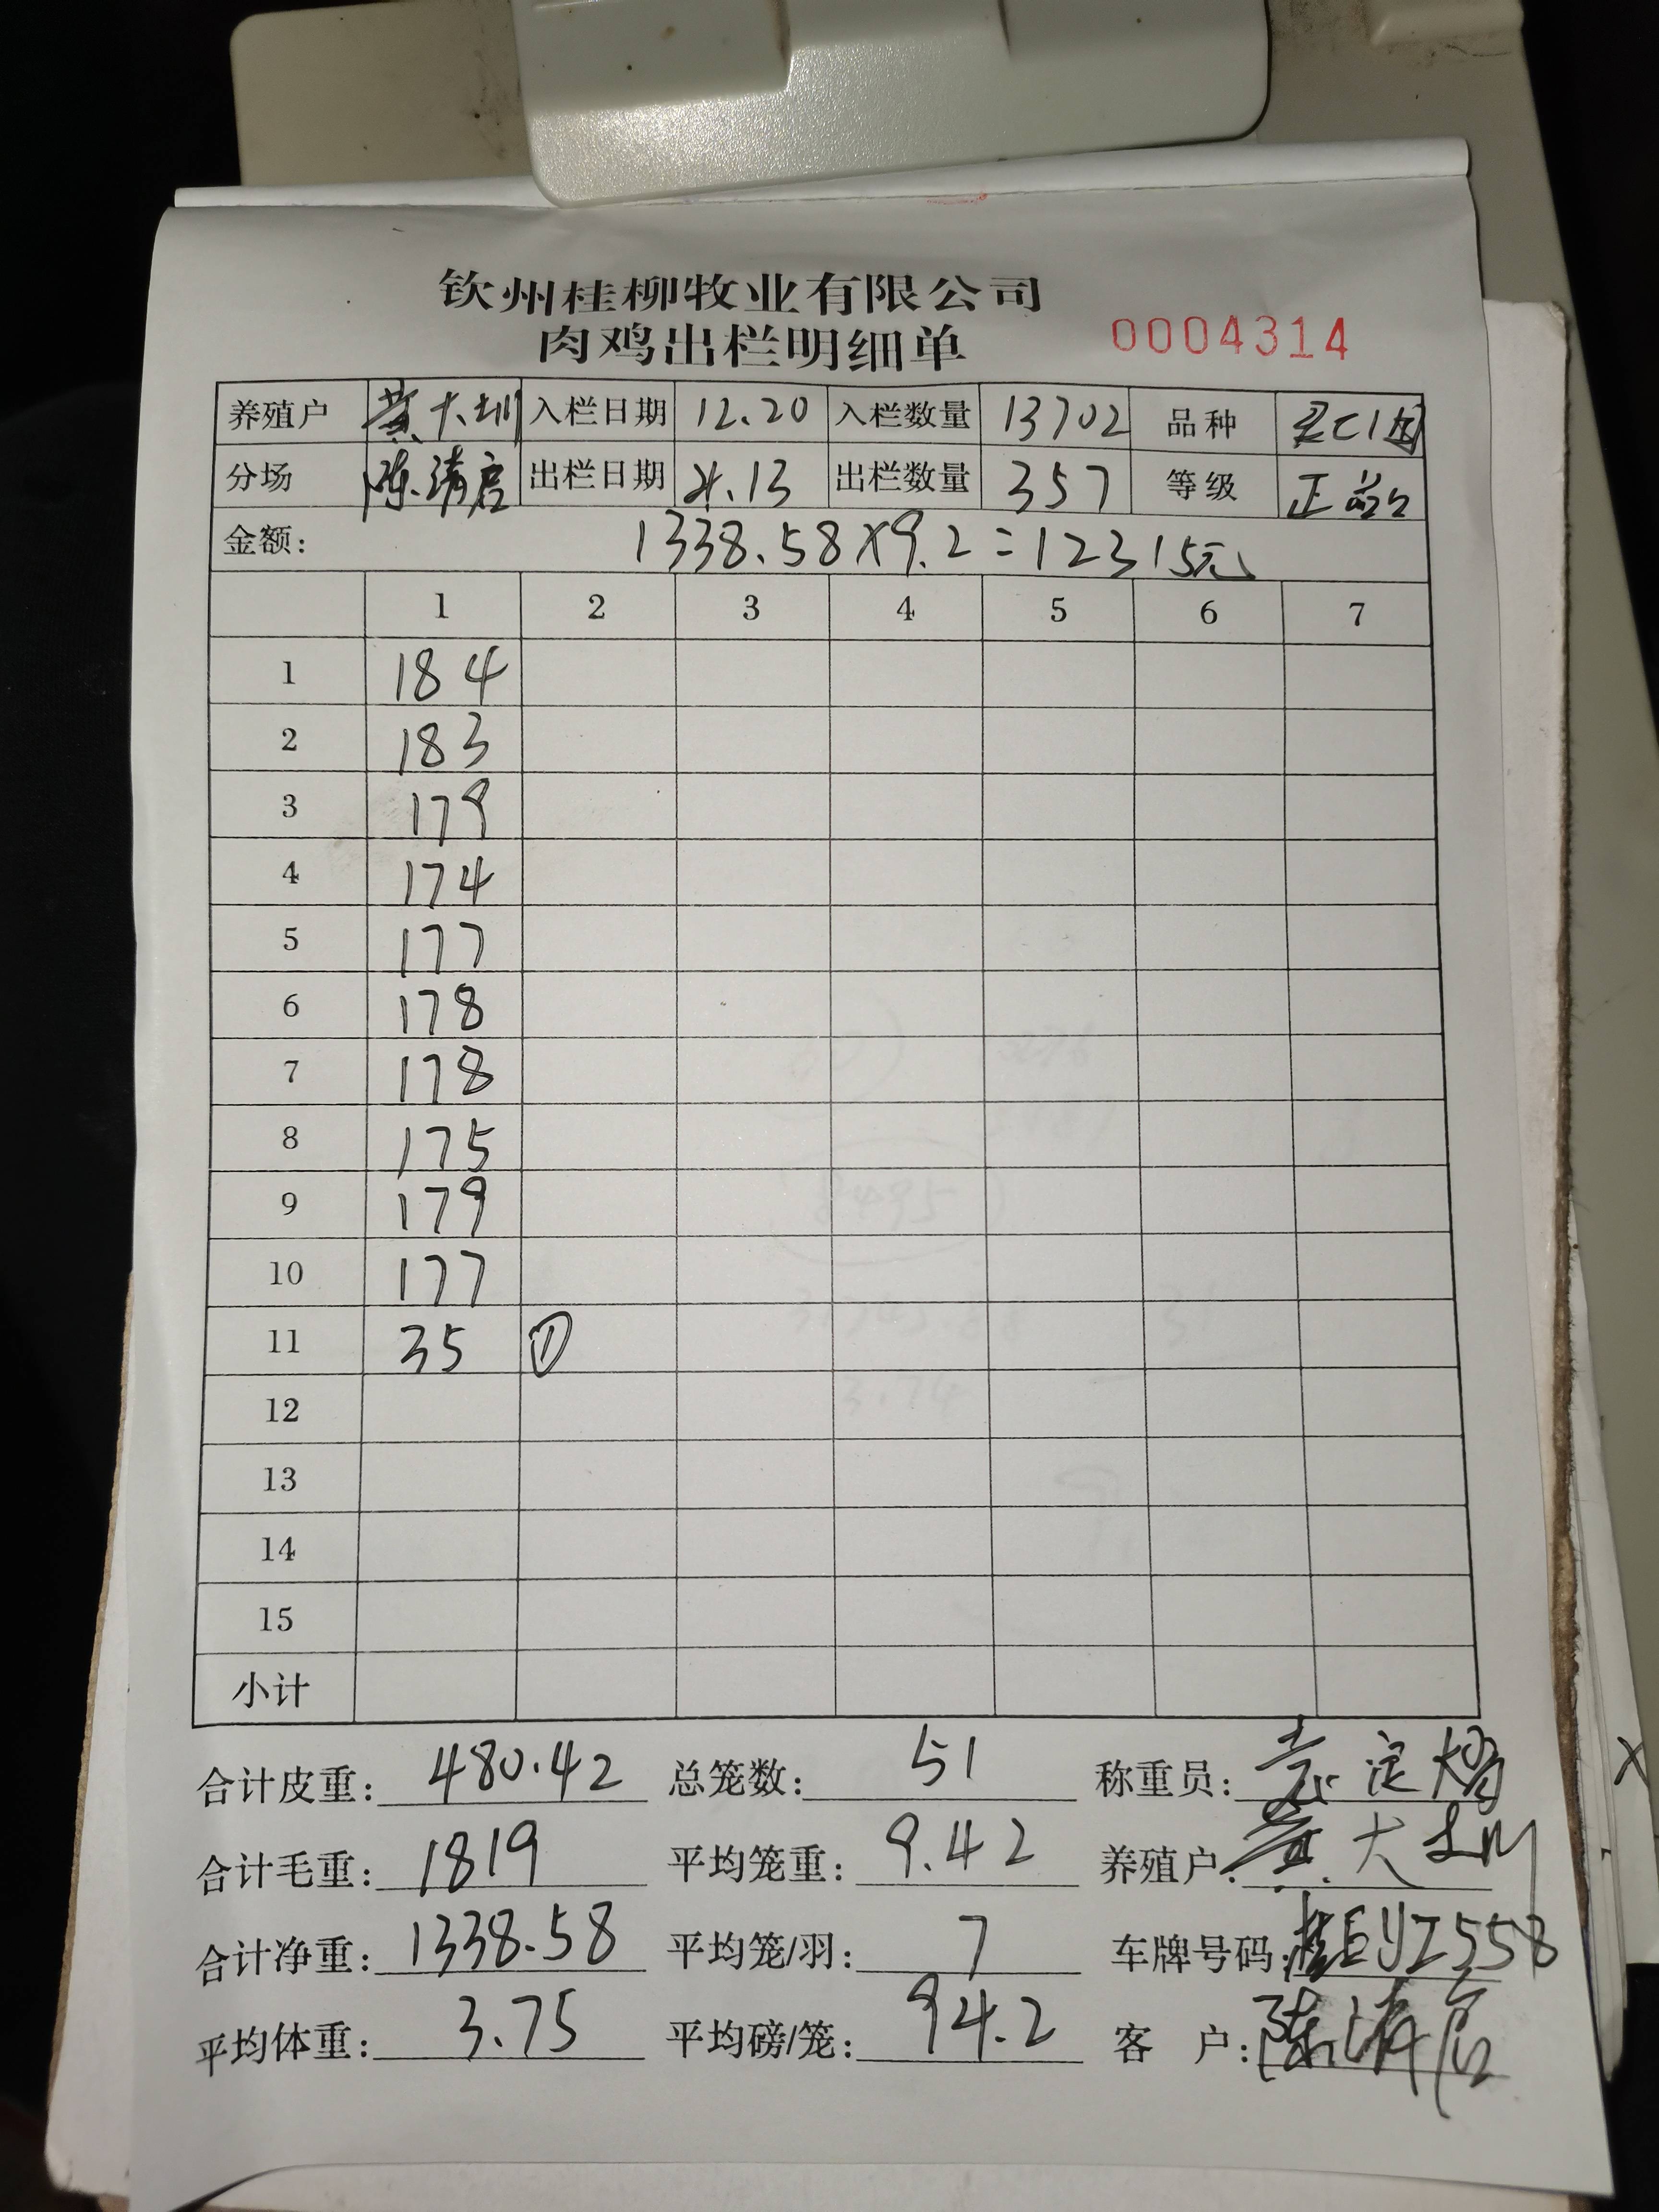 钦州桂柳牧业有限公司
肉鸡出栏明细单 0004314
养殖户 黄大圳 入栏日期 12.20 入栏数量 13702 品种
分场 陈清启 出栏日期 4.13 出栏数量 357 等级 正品
金额: 1338.58×9.2=12315元
1 2 3 4 5 6 7
1 184
2 183
3 179
4 174
5 177
6 178
7 178
8 175
9 179
10 177
11 35 ①
12
13
14
15
小计
合计皮重: 480.42 总笼数: 51 称重员:
合计毛重: 1819 平均笼重: 9.42 养殖户: 黄大圳
合计净重: 1338.58 平均笼/羽: 7 车牌号码: 桂EYZ558
平均体重: 3.75 平均磅/笼: 94.2 客 户: 陈清启